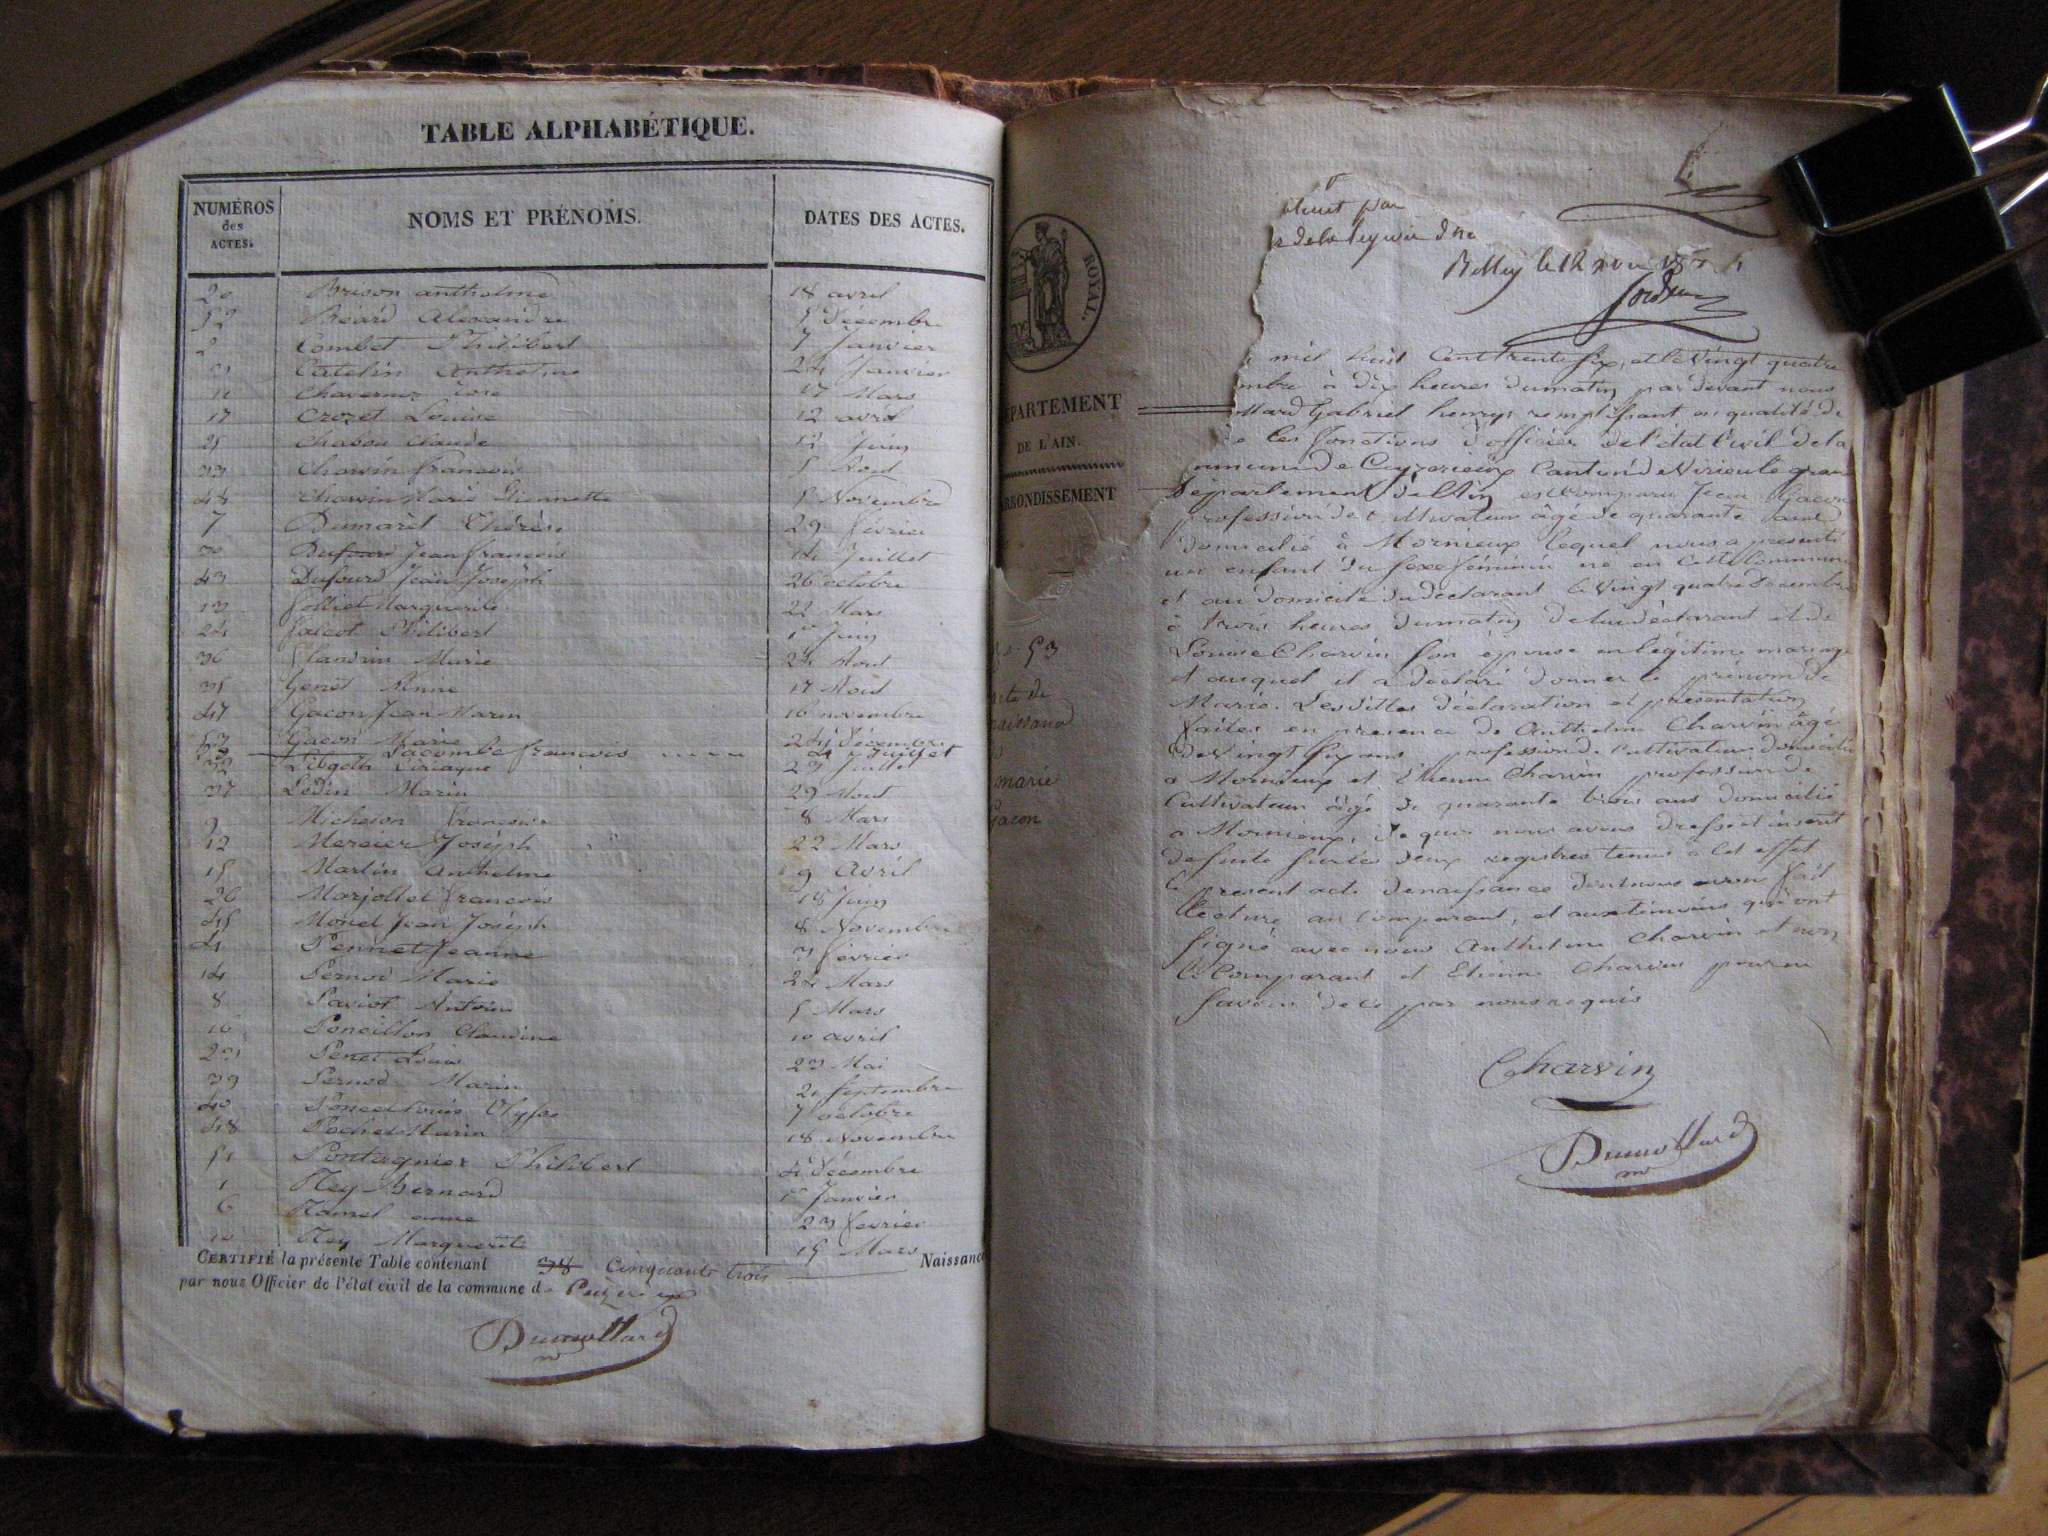 TABLE ALPHABÉTIQUE.
NUMÉROS des ACTES. NOMS ET PRÉNOMS. DATES DES ACTES.
20 Brison anthelme 18 avril
52 Béard Alexandre 5 Décembre
2 Combet Philibert 7 Janvier
Catelin Anthelme 24 Janvier
11 17 Mars
17 Crozet Louise 12 avril
25 Chabou Claude Juin
33 Charvin françois 5 Aout
44 Charvin Marie Piennette Novembre
7 Dumarêt Thérèse 29 février
30 Dufourd Jean françois Juillet
43 Dufourd Jean Joseph 26 octobre
13 folliet Marguerite 22 Mars
24 falcot Philibert 1er Juin
36 flandrin Marie 24 Aout
35 Genet 17 Aout
47 Gacon Jean Marin 16 novembre
53 Gacon Marie 24 décembre
Lacombe francois 21 Juillet
32 23 Juillet
37 Lédin Marin 29 Aout
9 Micheson françoise 8 Mars
12 Mercier Joséph 22 Mars
15 Martin Anthelme 9 Avril
26 Marjollet francois 18 Juin
45 Monet Jean Joseph 8 Novembre
4 Pennet Jeanne 3 février
14 Pernod Marie 24 Mars
8 Paviot Antoine 5 Mars
16 Poncillon Claudine 10 avril
23 Penet Louis 23 Mai
39 Pernod Marin 2 Septembre
40 Poncet Louis Ulysse 7 octobre
48 Pochet Marin 18 Novembre
51 Pontagnier Philibert 4 décembre
1 Rey Bernard 1er Janvier
6 Ramel anne 23 fevrier
10 Rey Marguerite 15 Mars
CERTIFIÉ la présente Table contenant 38 Cinquante trois Naissance
par nous Officier de l'état civil de la commune d
Dumollard
par
Belley le 12
ROYAL.
ÉPARTEMENT
DE L'AIN.
RRONDISSEMENT
53
cte de
naissance
marie
Gacon
mil huit Cent trente six, et le vingt quatre
mbre à dix heures du matin par devant nous
llard Gabriel henry remplissant en qualité de
les fonctions d'officier de l'état civil de la
mmune de Ceyzerieux Canton de Virieu le grand
Département de l'Ain est comparu Jean Gacon
profession de Cultivateur âgé de quarante ans
domicilié à Mornieux lequel nous a presenté
un enfant du sexe féminin né en Cette Commune
et au domicile du déclarant le vingt quatre décembre
à trois heures du matin de lui déclarant et de
Louise Charvin son épouse en légitime mariage
et auquel il a déclaré donner le prénom de
Marie. Lesdittes déclaration et présentation
faites en presence de Anthelme Charvin âgé
de vingt six ans profession de Cultivateur domicilié
a Mornieux et Etienne Charvin profession de
Cultivateur âgé de quarante trois ans domicilié
a Mornieux, de quoi nous avons dressé et inscrit
de suite sur les deux registres tenus a cet effet
le present acte de naissance dont nous avons fait
lecture au comparant, et aux témoins qui ont
signé avec nous Anthelme Charvin et non
le Comparant et Etienne Charvin pour ne
savoir de ce par nous requis
Charvin
Dumollard